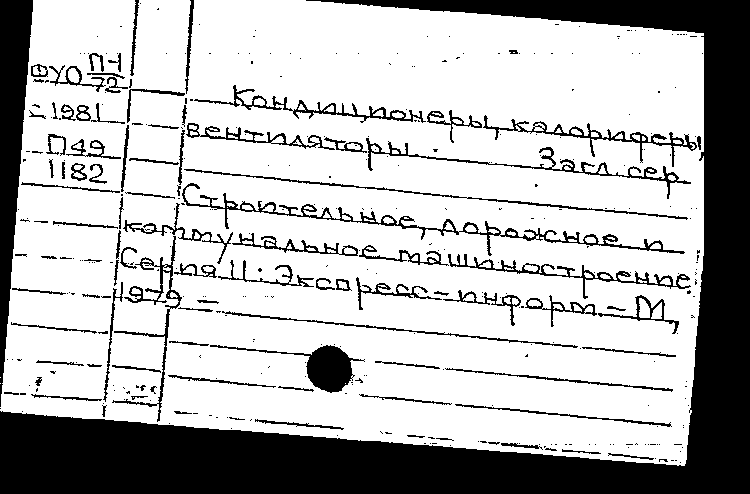 ФУО П-1/72
- 1981
П49
1182
Кондиционеры, калориферы,
вентиляторы. Загл. сер.
Строительное, дорожное и
коммунальное машиностроение.
Серия 11: Экспресс-информ. - М.,
1979 -